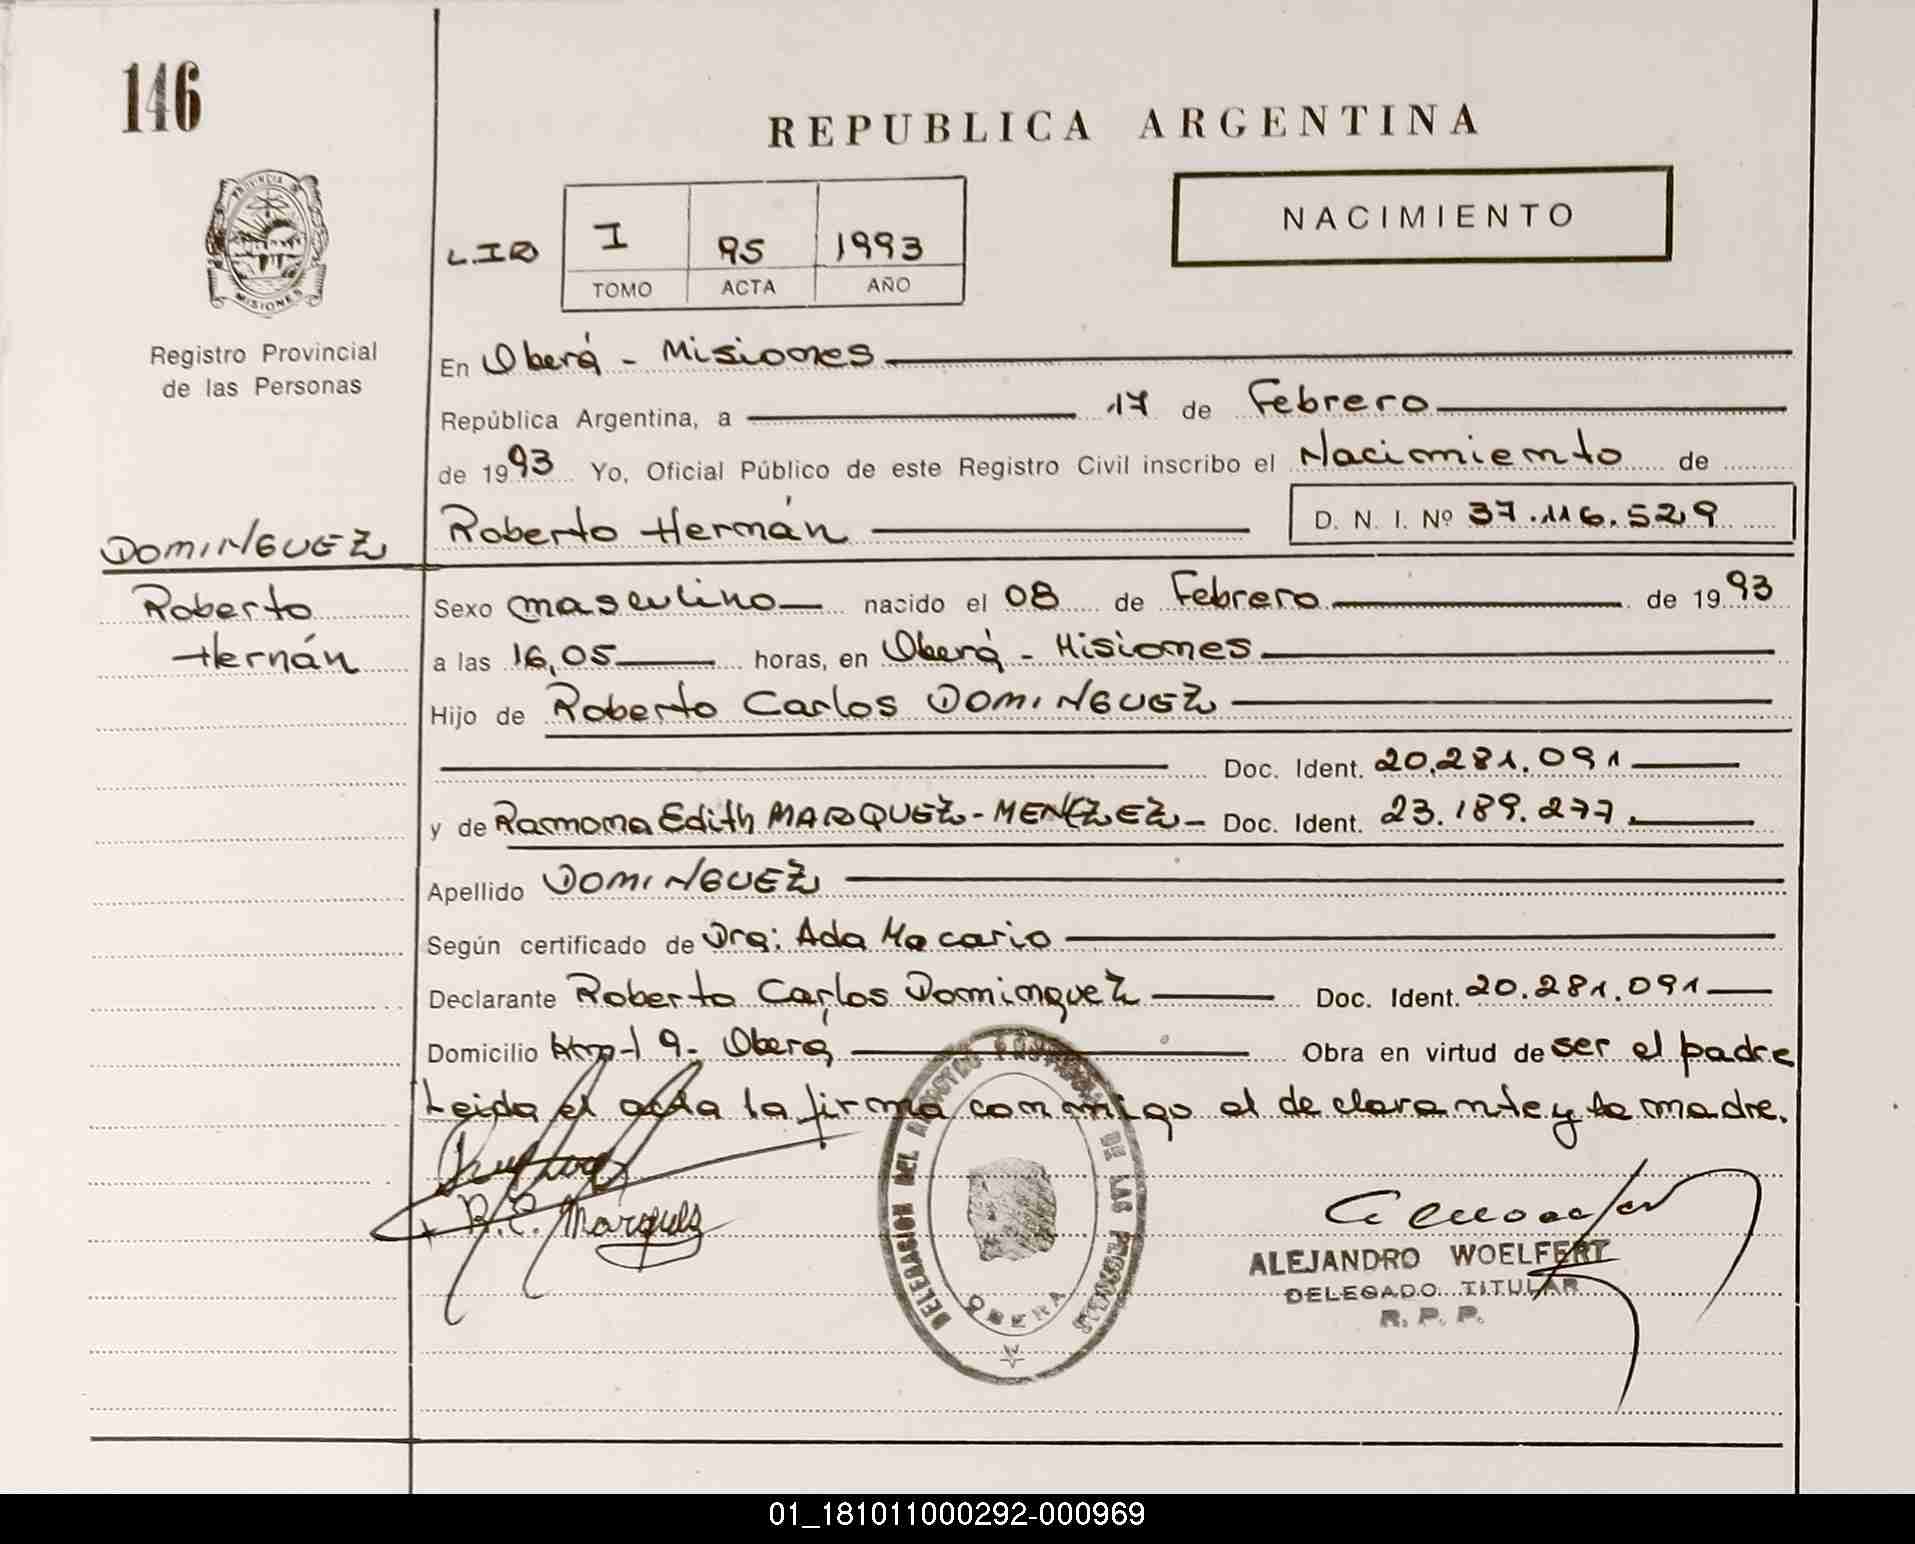 146
REPUBLICA ARGENTINA
PROVINCIA DE
MISIONES
Registro Provincial
de las Personas
NACIMIENTO
LIB I 95 1993
TOMO ACTA AÑO
En Oberá - Misiones
República Argentina, a 17 de Febrero
de 1993 Yo, Oficial Público de este Registro Civil inscribo el Nacimiento de
Roberto Hernán D. N. I. Nº 37.116.529
DOMINGUEZ
Roberto
Hernán
Sexo masculino nacido el 08 de Febrero de 1993
a las 16,05 horas, en Oberá - Misiones
Hijo de Roberto Carlos DOMINGUEZ
Doc. Ident. 20.281.091
y de Ramona Edith MARQUEZ - Doc. Ident. 23.189.277.
Apellido DOMINGUEZ
Según certificado de Dra: Ada Macario
Declarante Roberto Carlos Dominguez Doc. Ident. 20.281.091
Domicilio 9 - Oberá Obra en virtud de ser el padre
Leida el acta la firma conmigo el declarante y la madre.
R. E. Marquez
DELEGACION DEL REGISTRO PROVINCIAL DE LAS PERSONAS
OBERA
ALEJANDRO WOELFERT
DELEGADO TITULAR
R. P. P.
01_181011000292-000969